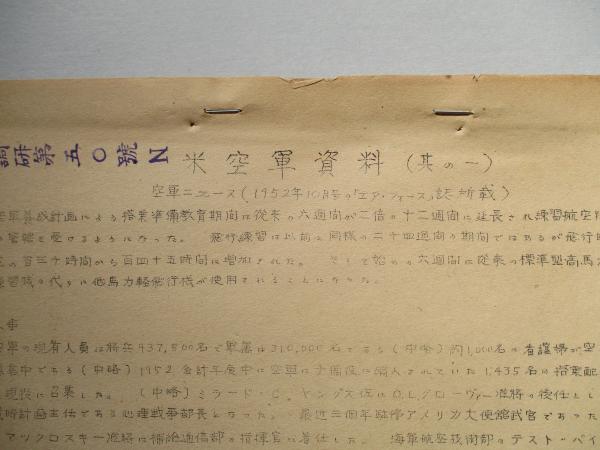 調研第五〇號 N
米空軍資料(其の一)
空軍ニュース(1952年10月号の「エア・フォース」誌所載)
計画による搭乗準備教育期間は従来の六週間が二倍の十二週間に延長され練習航空
を受けるようになった。 飛行練習は以前と同様の二十四週間の期間ではあるが飛行時
百三十時間から百四十五時間に増加された。 そして始めの六週間に従来の標準型高馬力
練習機の代りに低馬力軽飛行機が使用されることになった。
人事
空軍の現有人員は将兵937,500名で軍属は310,000名である(中略)約1,000名の看護婦が空
中である(中略)1952会計年度中に空軍は予備役に編入されていた1,435名の搭乗
現役に召集した。 (中略)ミラード・C・ヤングス准将はO.L.グローヴァー准将の後任とし
計画主任である心理戦争部長となった。 最近三個年駐停アメリカ大使館武官であった
マックロスキー准将は補給通信部の指揮官に着任した。 海軍航空技術部のテスト・パイ